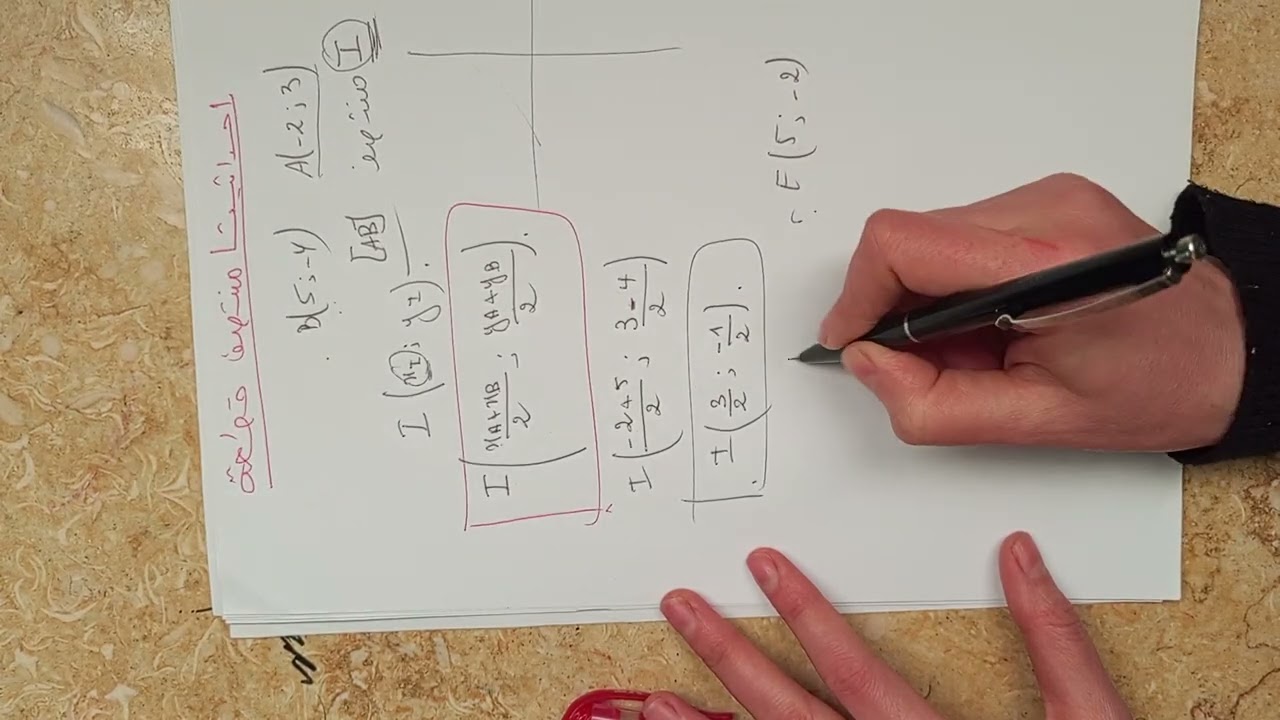 احداثيتا منتصف قطعة
A(-2 ; 3) B(5 ; -4)
I منتصف [AB]
I (xI ; yI).
I ( xA+xB/2 ; yA+yB/2 ).
I ( -2+5/2 ; 3-4/2 )
I ( 3/2 ; -1/2 ).
E (5 ; -2)